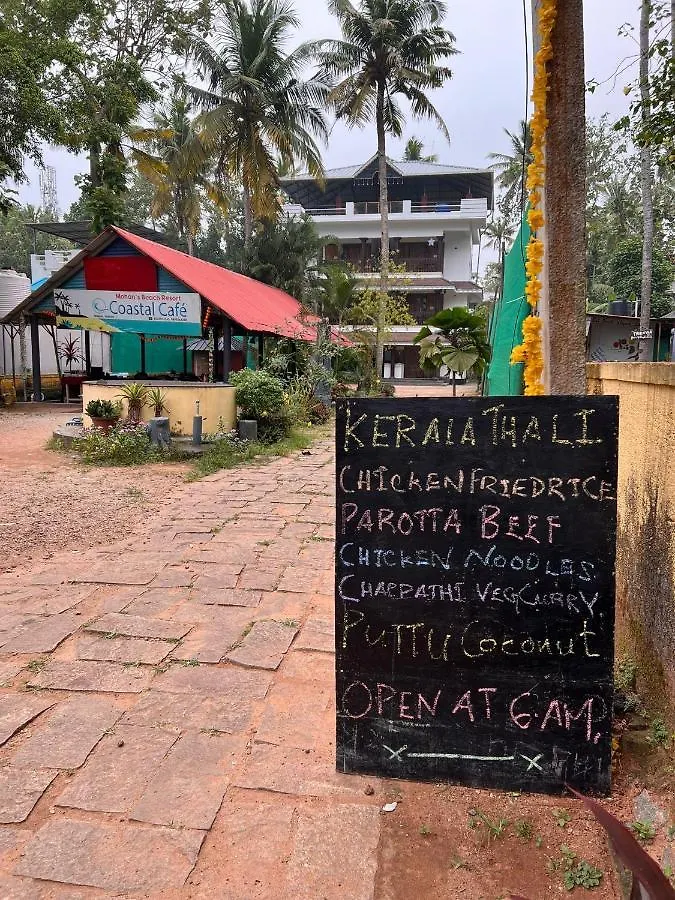 Mohan's Beach Resort
Coastal Café
KERALA THALI
CHICKEN FRIED RICE
PAROTTA BEEF
CHICKEN NOODLES
CHAPPATHI VEG CURRY
PUTTU COCONUT
OPEN AT 6 AM,